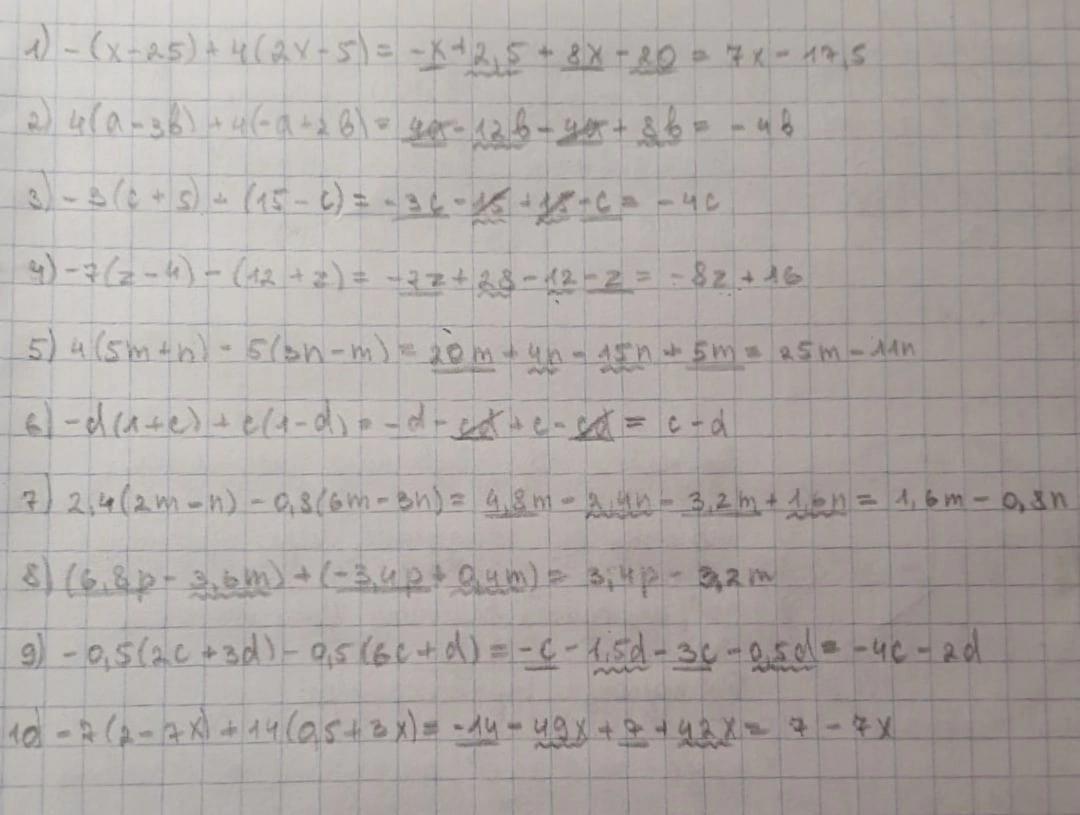 1) -(x-25)+4(2x-5)= -x+2,5+8x-20= 7x-17,5
2) 4(a-3b)+4(-a+2b)= 4a-12b-4a+8b= -4b
3) -3(c+5)+(15-c)= -3c-15+15-c= -4c
4) -7(z-4)-(12+z)= -7z+28-12-z= -8z+16
5) 4(5m+n)-5(3n-m)= 20m+4n-15n+5m= 25m-11n
6) -d(1+c)+c(1-d)= -d-cd+c-cd= c-d
7) 2,4(2m-n)-0,8(6m-3n)= 4,8m-2,4n-3,2m+1,6n= 1,6m-0,8n
8) (6,8p-3,6m)+(-3,4p+0,4m)= 3,4p-3,2m
9) -0,5(2c+3d)-0,5(6c+d)= -c-1,5d-3c-0,5d= -4c-2d
10) -7(2-7x)+14(0,5+3x)= -14-49x+7+42x= 7-7x